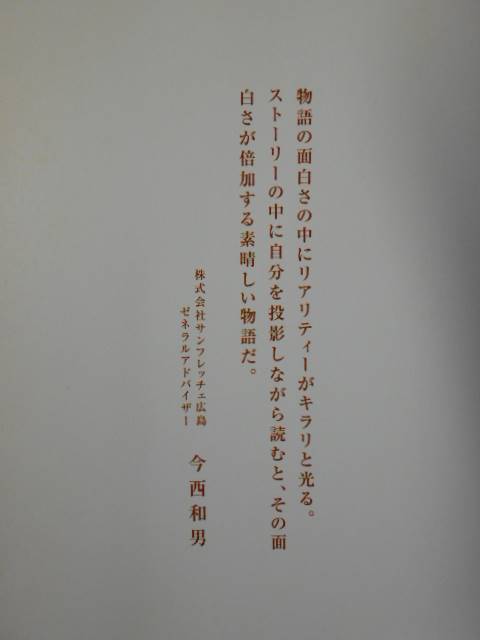 物語の面白さの中にリアリティーがキラリと光る。
ストーリーの中に自分を投影しながら読むと、その面
白さが倍加する素晴しい物語だ。
株式会社サンフレッチェ広島
ゼネラルアドバイザー
今西和男